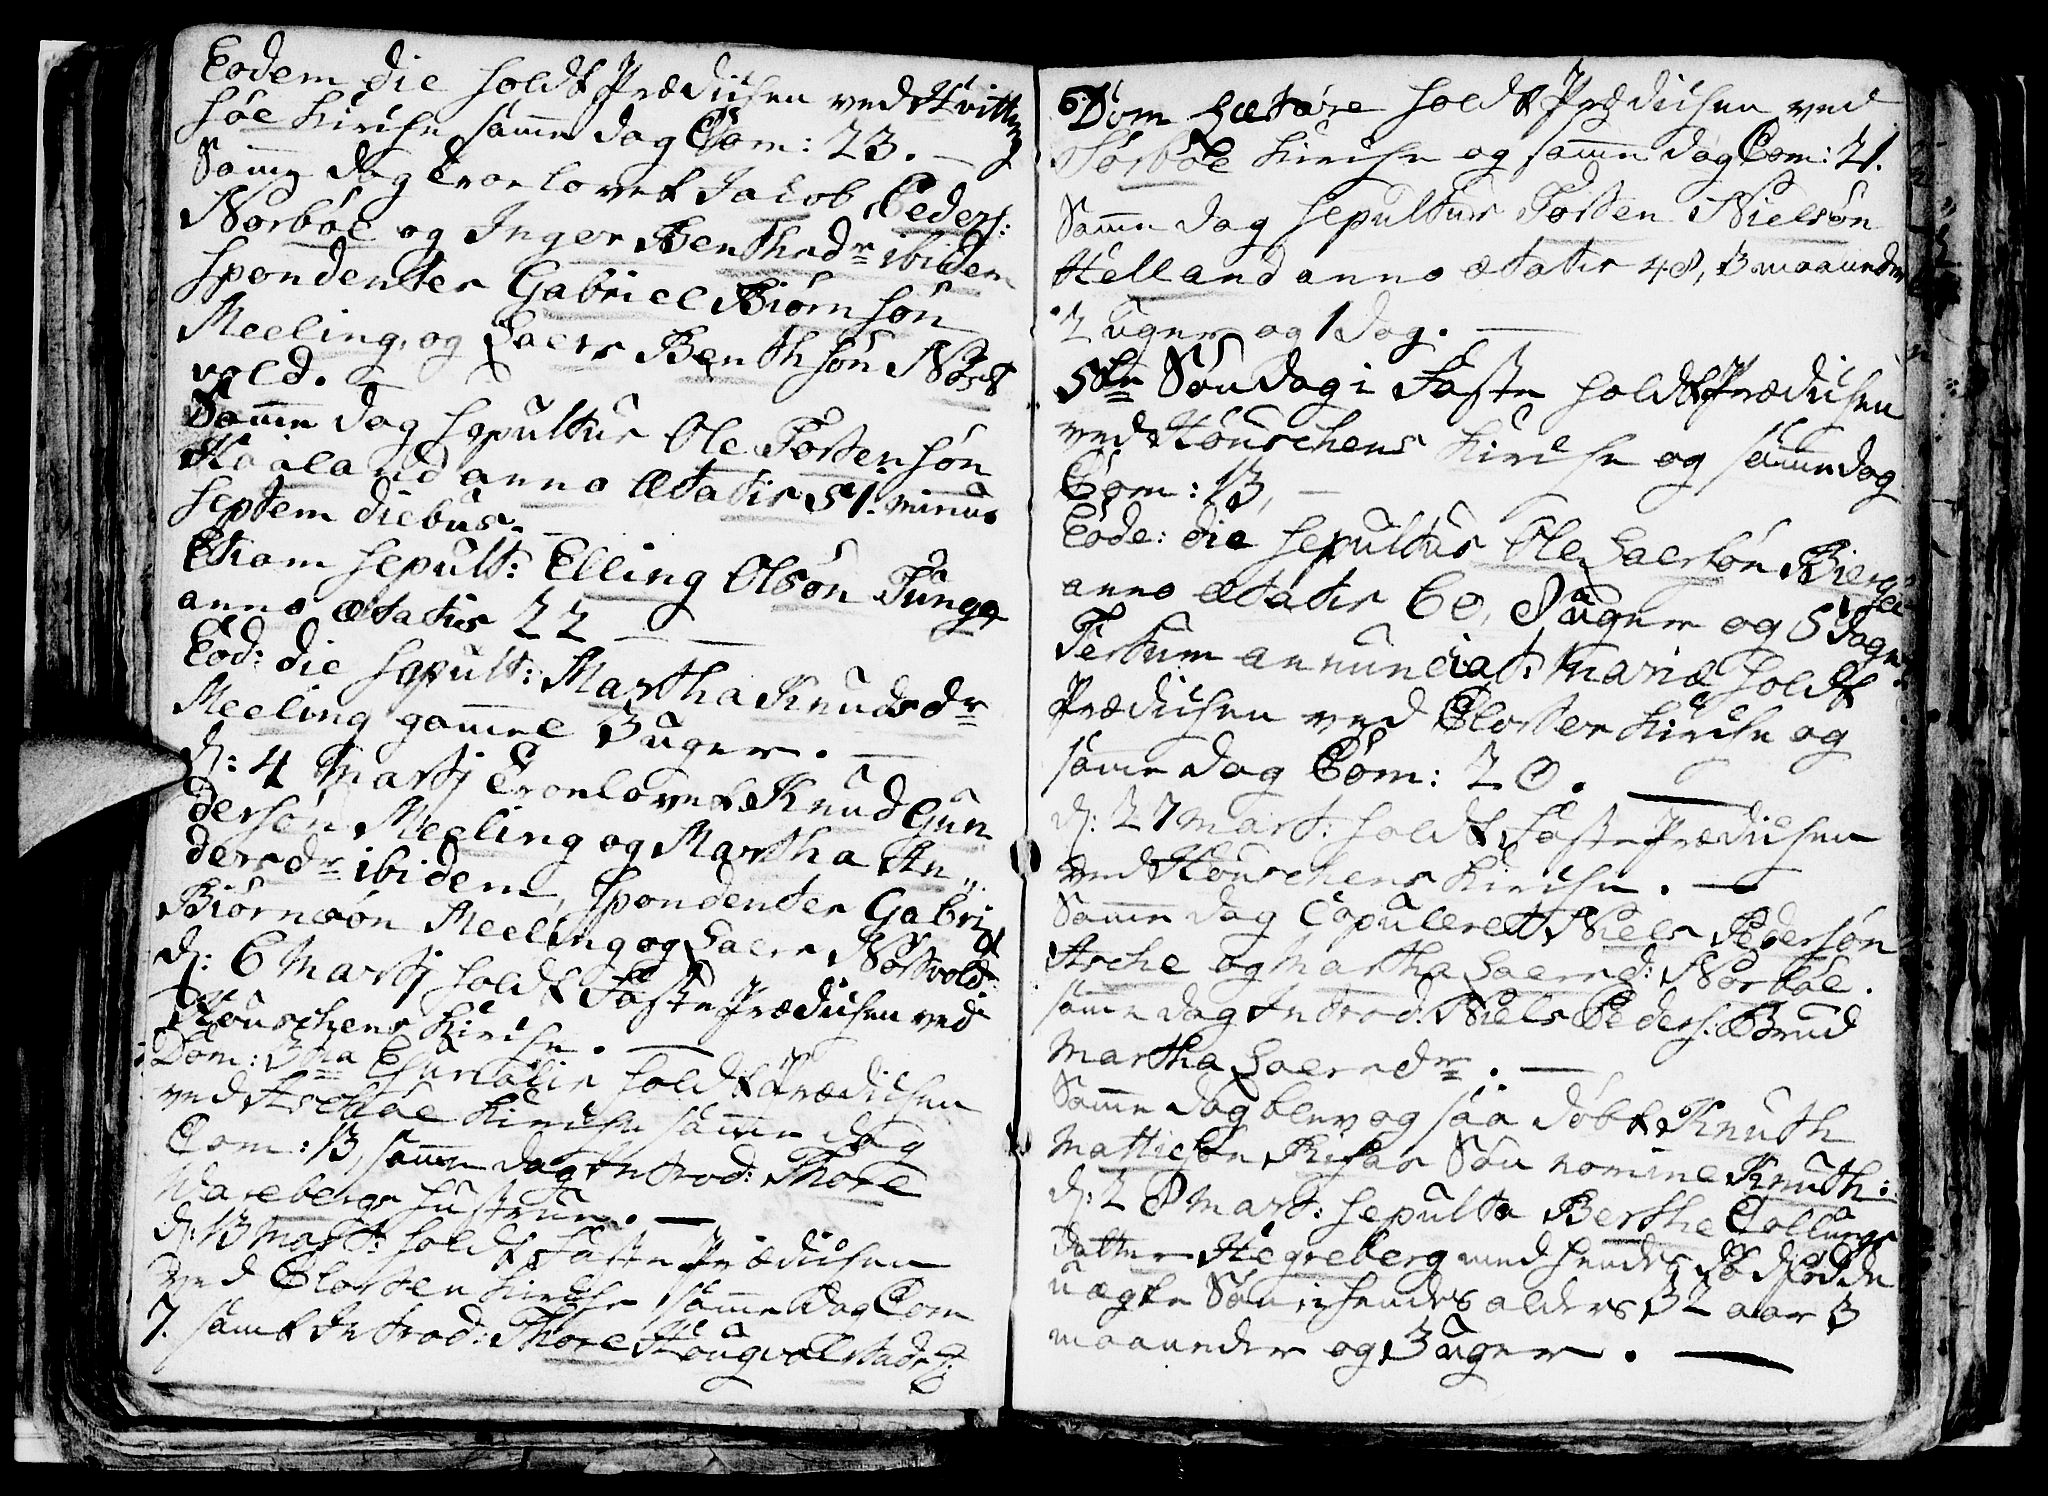 Eodem die holdt Prædichen ved Hvitting
søe Kirche samme dag Com: 23.
Samme dag Troelovet Jacob Peders:
Norbøe og Inger Benthsdr ibidem
spondenter Gabriel Biørnsøn
Meeling, og Laers Benthsøn Nord
vold.
Samme dag sepultus Ole Tostensøn
Haaland anno ætatis 51. minus
septem diebus.
Etiam sepult: Elling Olsøn Tunge
anno ætatis 22
Eod: die sepult: Martha Knudsdr
Meeling gammel 3 uger.
d: 4 Martj Troelovet Knud Gun
dersøn Meeling og Martha An
dersdr ibidem, spondenter Gabriel
Biørnsøn Meeling og Laers Nordvold
d: 6 Martj holdt Faste Prædichen ved
Houschens Kirche.
Dom: 3tia holdt Prædichen
ved Aschøe Kirche samme dag
Com: 13, samme dag Introd: Thore
Warebergs Hustrue.
d: 13 Mart: holdt Faste Prædichen
ved Closter Kirche samme dag Com
7. samt Introd: Thore Haugvalstads
Dom Lætare holdt Prædichen ved
Sørbøe Kirche og samme dag Com: 21.
Samme dag sepultus Tosten Nielsøn
Helland anno ætatis 48, 3 maaneder
2 uger og 1 dag.
5te Søndag i Faste holdt Prædichen
ved Houschens Kirche og samme dag
Com: 13,
Eode: die sepultus Ole Laersøn Bierge
anno ætatis 60, 8 uger og 5 dage
Festum annunciat: Mariæ holdt
Prædichen ved Closter Kirche og
samme dag Com: 20.
d: 27 Mart: holdt Faste Prædichen
ved Houschens Kirche.
Samme dag Copuleret Niels Pedersøn
Asche og Martha Laersd: Norbøe.
samme dag Introd: Niels Peders: Brud
Martha Laersdr.
Samme dag blev og saa døbt Knuth
Mattisøn Søn nomine Knuth:
d: 28 Mart: sepulta Berthe
datter Hegreberg med hendes dødfødde
uægte Søn i hendes alders 32 aar 3
maaneder og 3 uger.